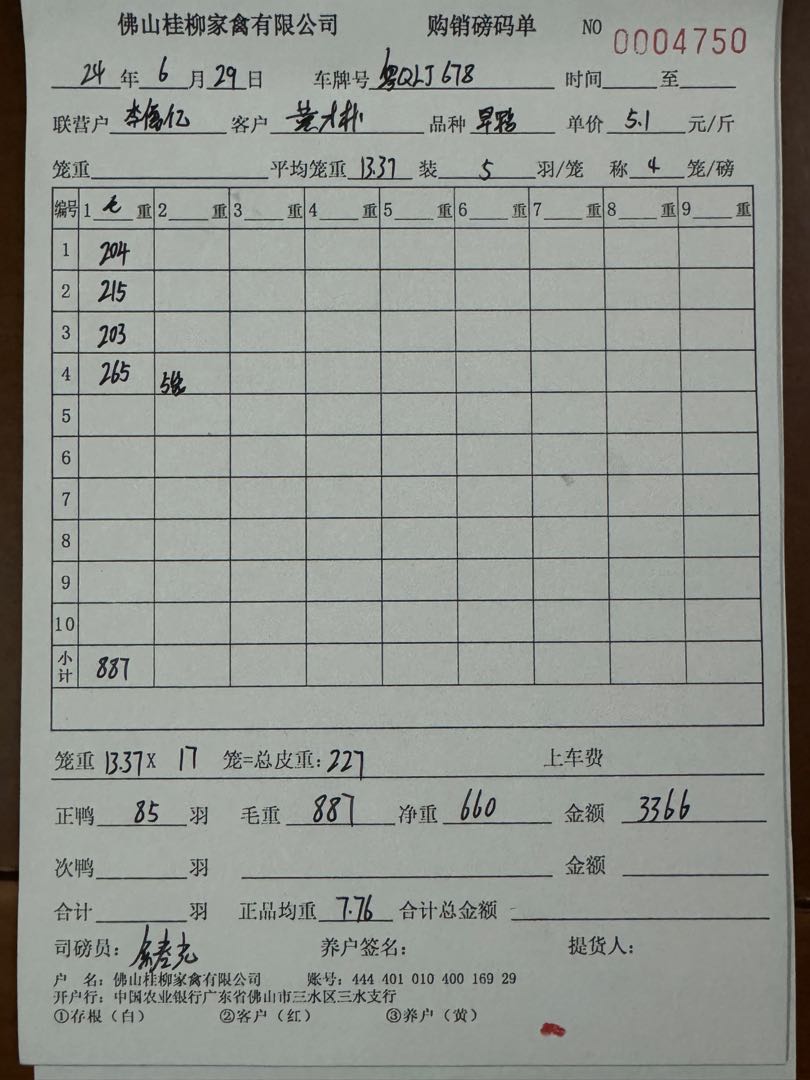 佛山桂柳家禽有限公司 购销磅码单 NO 0004750
24年6月29日 车牌号 粤QLJ678 时间 至
联营户 李 亿 客户 黄才朴 品种 旱鸭 单价 5.1 元/斤
笼重 平均笼重 13.37 装 5 羽/笼 称 4 笼/磅
编号 1 毛 重 2 重 3 重 4 重 5 重 6 重 7 重 8 重 9 重
1 204
2 215
3 203
4 265 5笼
5
6
7
8
9
10
小计 887
笼重 13.37 X 17 笼=总皮重: 227 上车费
正鸭 85 羽 毛重 887 净重 660 金额 3366
次鸭 羽 金额
合计 羽 正品均重 7.76 合计总金额
司磅员: 养户签名: 提货人:
户 名: 佛山桂柳家禽有限公司 账号: 444 401 010 400 169 29
开户行: 中国农业银行广东省佛山市三水区三水支行
①存根（白） ②客户（红） ③养户（黄）